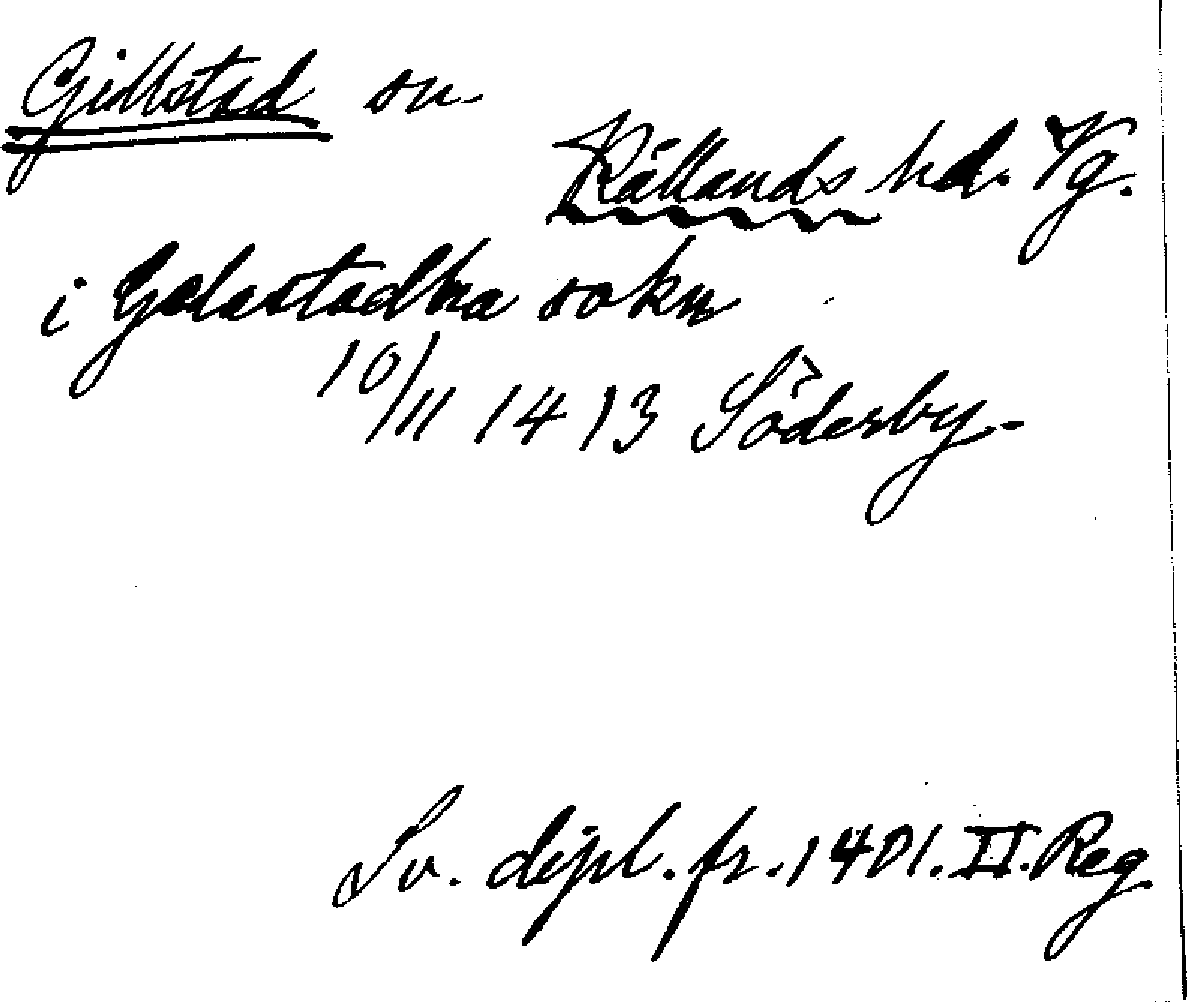 Gillstad sn
Kållands hd. Vg.
i Gælastadha sokn
10/11 1413 Söderby-
Sv. dipl. fr. 1401. II. Reg